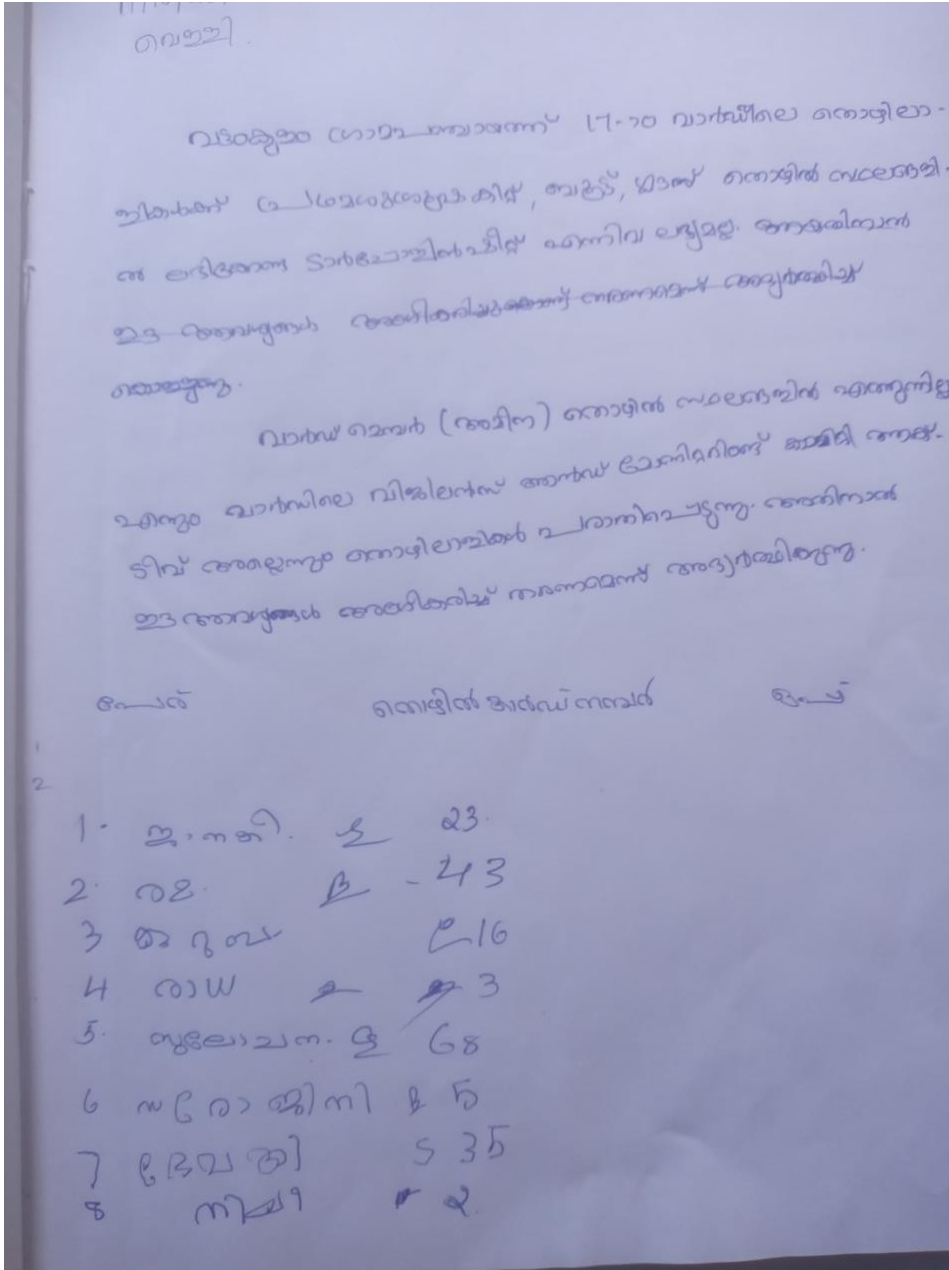 വെള്ളി.
വടംകുളം ഗ്രാമ പഞ്ചായത്ത് 17-ാം വാർഡിലെ തൊഴിലാ-
ളികൾക്ക് പ്രഥമശുശ്രൂഷ കിറ്റ്, ബൂട്ട്, തൊഴിൽ സ്ഥലങ്ങളി-
ൽ ടാർപോളിൻ ഷീറ്റ് എന്നിവ ലഭ്യമല്ല. അതിനാൽ
ഈ ആവശ്യങ്ങൾ അംഗീകരിച്ചു തരണമെന്ന് അഭ്യർത്ഥിച്ച്
കൊള്ളുന്നു.
വാർഡ് മെമ്പർ (അമീന) തൊഴിൽ സ്ഥലങ്ങളിൽ എത്തുന്നില്ല
എന്നും വാർഡിലെ വിജിലൻസ് ആൻഡ് മോണിറ്ററിങ്ങ് കമ്മിറ്റി ആക്-
ടീവ് അല്ലെന്നും തൊഴിലാളികൾ പരാതിപ്പെടുന്നു. അതിനാൽ
ഈ ആവശ്യങ്ങൾ അംഗീകരിച്ച് തരണമെന്ന് അഭ്യർത്ഥിക്കുന്നു.
പേര് തൊഴിൽ കാർഡ് നമ്പർ ഒപ്പ്
1
2
1. ജാനകി. 23.
2. രമ. - 43
3 16
4 രാധ 3
5. സുലോചന. 68
6 സരോജിനി 5
7 ദേവകി 35
8 2